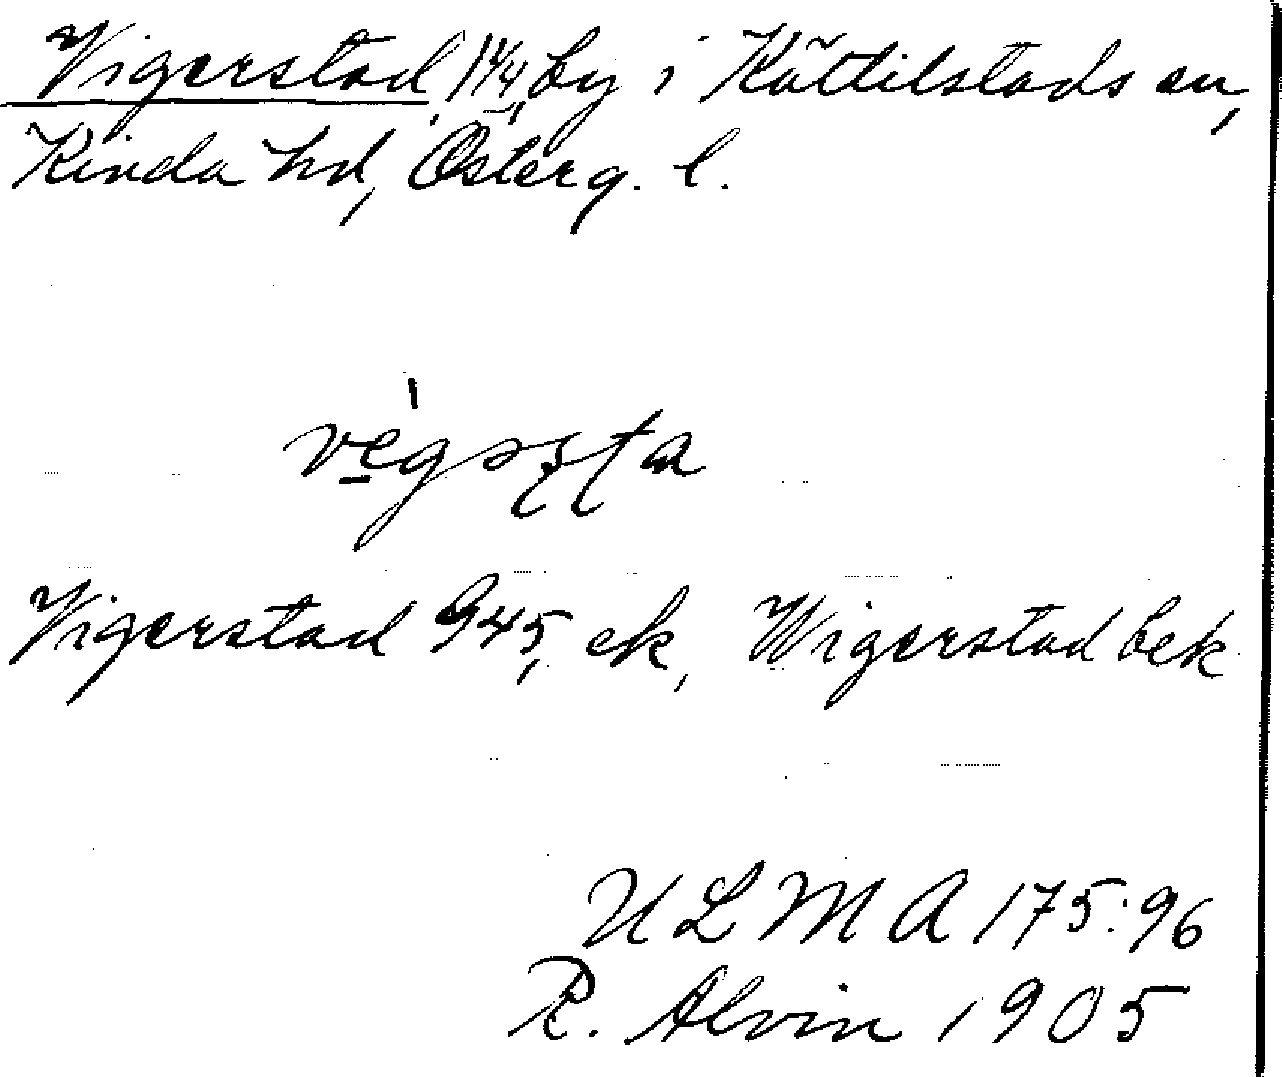 Vigerstad, 1 1/4, by i Kättilstads sn,
Kinda hd, Österg. l.
Vigerstad 945, ek, Wigerstad bek
ULMA 175:96
R. Alvin 1905